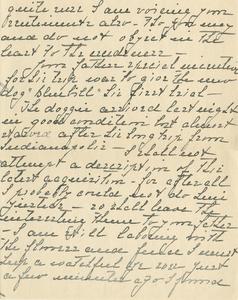 quite sure I am voicing your
sentiments also - 
and do not object in the
least to the
Your father's special
for his trip was to give the new
dog, Bluebill - his first trial -
The doggie arrived last night
in good condition but almost
after his long trip from
Indianapolis - I shall not
attempt a description of this
latest acquisition, for after all
I probably could not do him
justice - so shall leave the
interesting theme to your father
- I am still laboring with
the flowers and since I must
keep a watchful eye out just
a few minutes ago I found